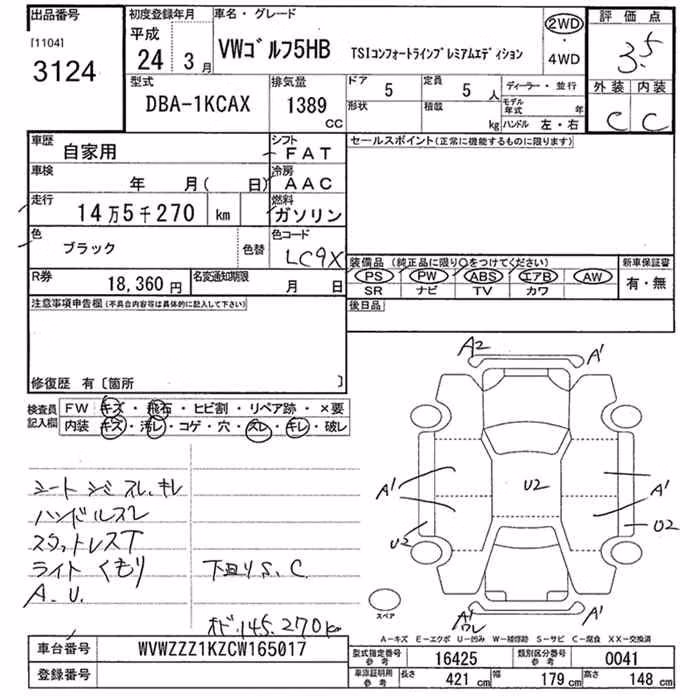 出品番号
[1104]
3124
初度登録年月
平成
24 3月
車名・グレード
VWゴルフ5HB TSIコンフォートラインプレミアムエディション
2WD
・
4WD
評価点
3.5
外装 内装
C C
型式
DBA-1KCAX
排気量
1389
CC
ドア 5
定員 5 人
形状
積載 kg
ディーラー・並行
モデル年式 年
ハンドル 左・右
車歴
自家用
シフト
FAT
車検
年 月( 日)
冷房
AAC
走行
14万5千270 km
燃料
ガソリン
色
ブラック
色替
色コード
LC9X
R券
18,360 円
名変通知期限
月 日
セールスポイント(正常に機能するものに限ります)
装備品(純正品に限り○をつけてください)
PS PW ABS エアB AW
SR ナビ TV カワ
新車保証書
有・無
後日品
注意事項申告欄(不具合内容等は具体的に記入して下さい)
修復歴 有〔箇所 〕
検査員
記入欄
FW キズ・飛石・ヒビ割・リペア跡・×要
内装 キズ・汚レ・コゲ・穴・スレ・キレ・破レ
シートシミスレ、キレ
ハンドルスレ
スタットレスT
ライトくもり
A.U.
下回りS.C.
オド145.270km
A2
A1
A1
A1
U2
U2
U2
A1
ワレ
スペア
A-キズ E-エクボ U-凹み W-補修跡 S-サビ C-腐食 XX-交換済
車台番号
WVWZZZ1KZCW165017
登録番号
型式指定番号
参考
16425
類別区分番号
参考
0041
車庫証明用
参考
長さ 421 cm
幅 179 cm
高さ 148 cm